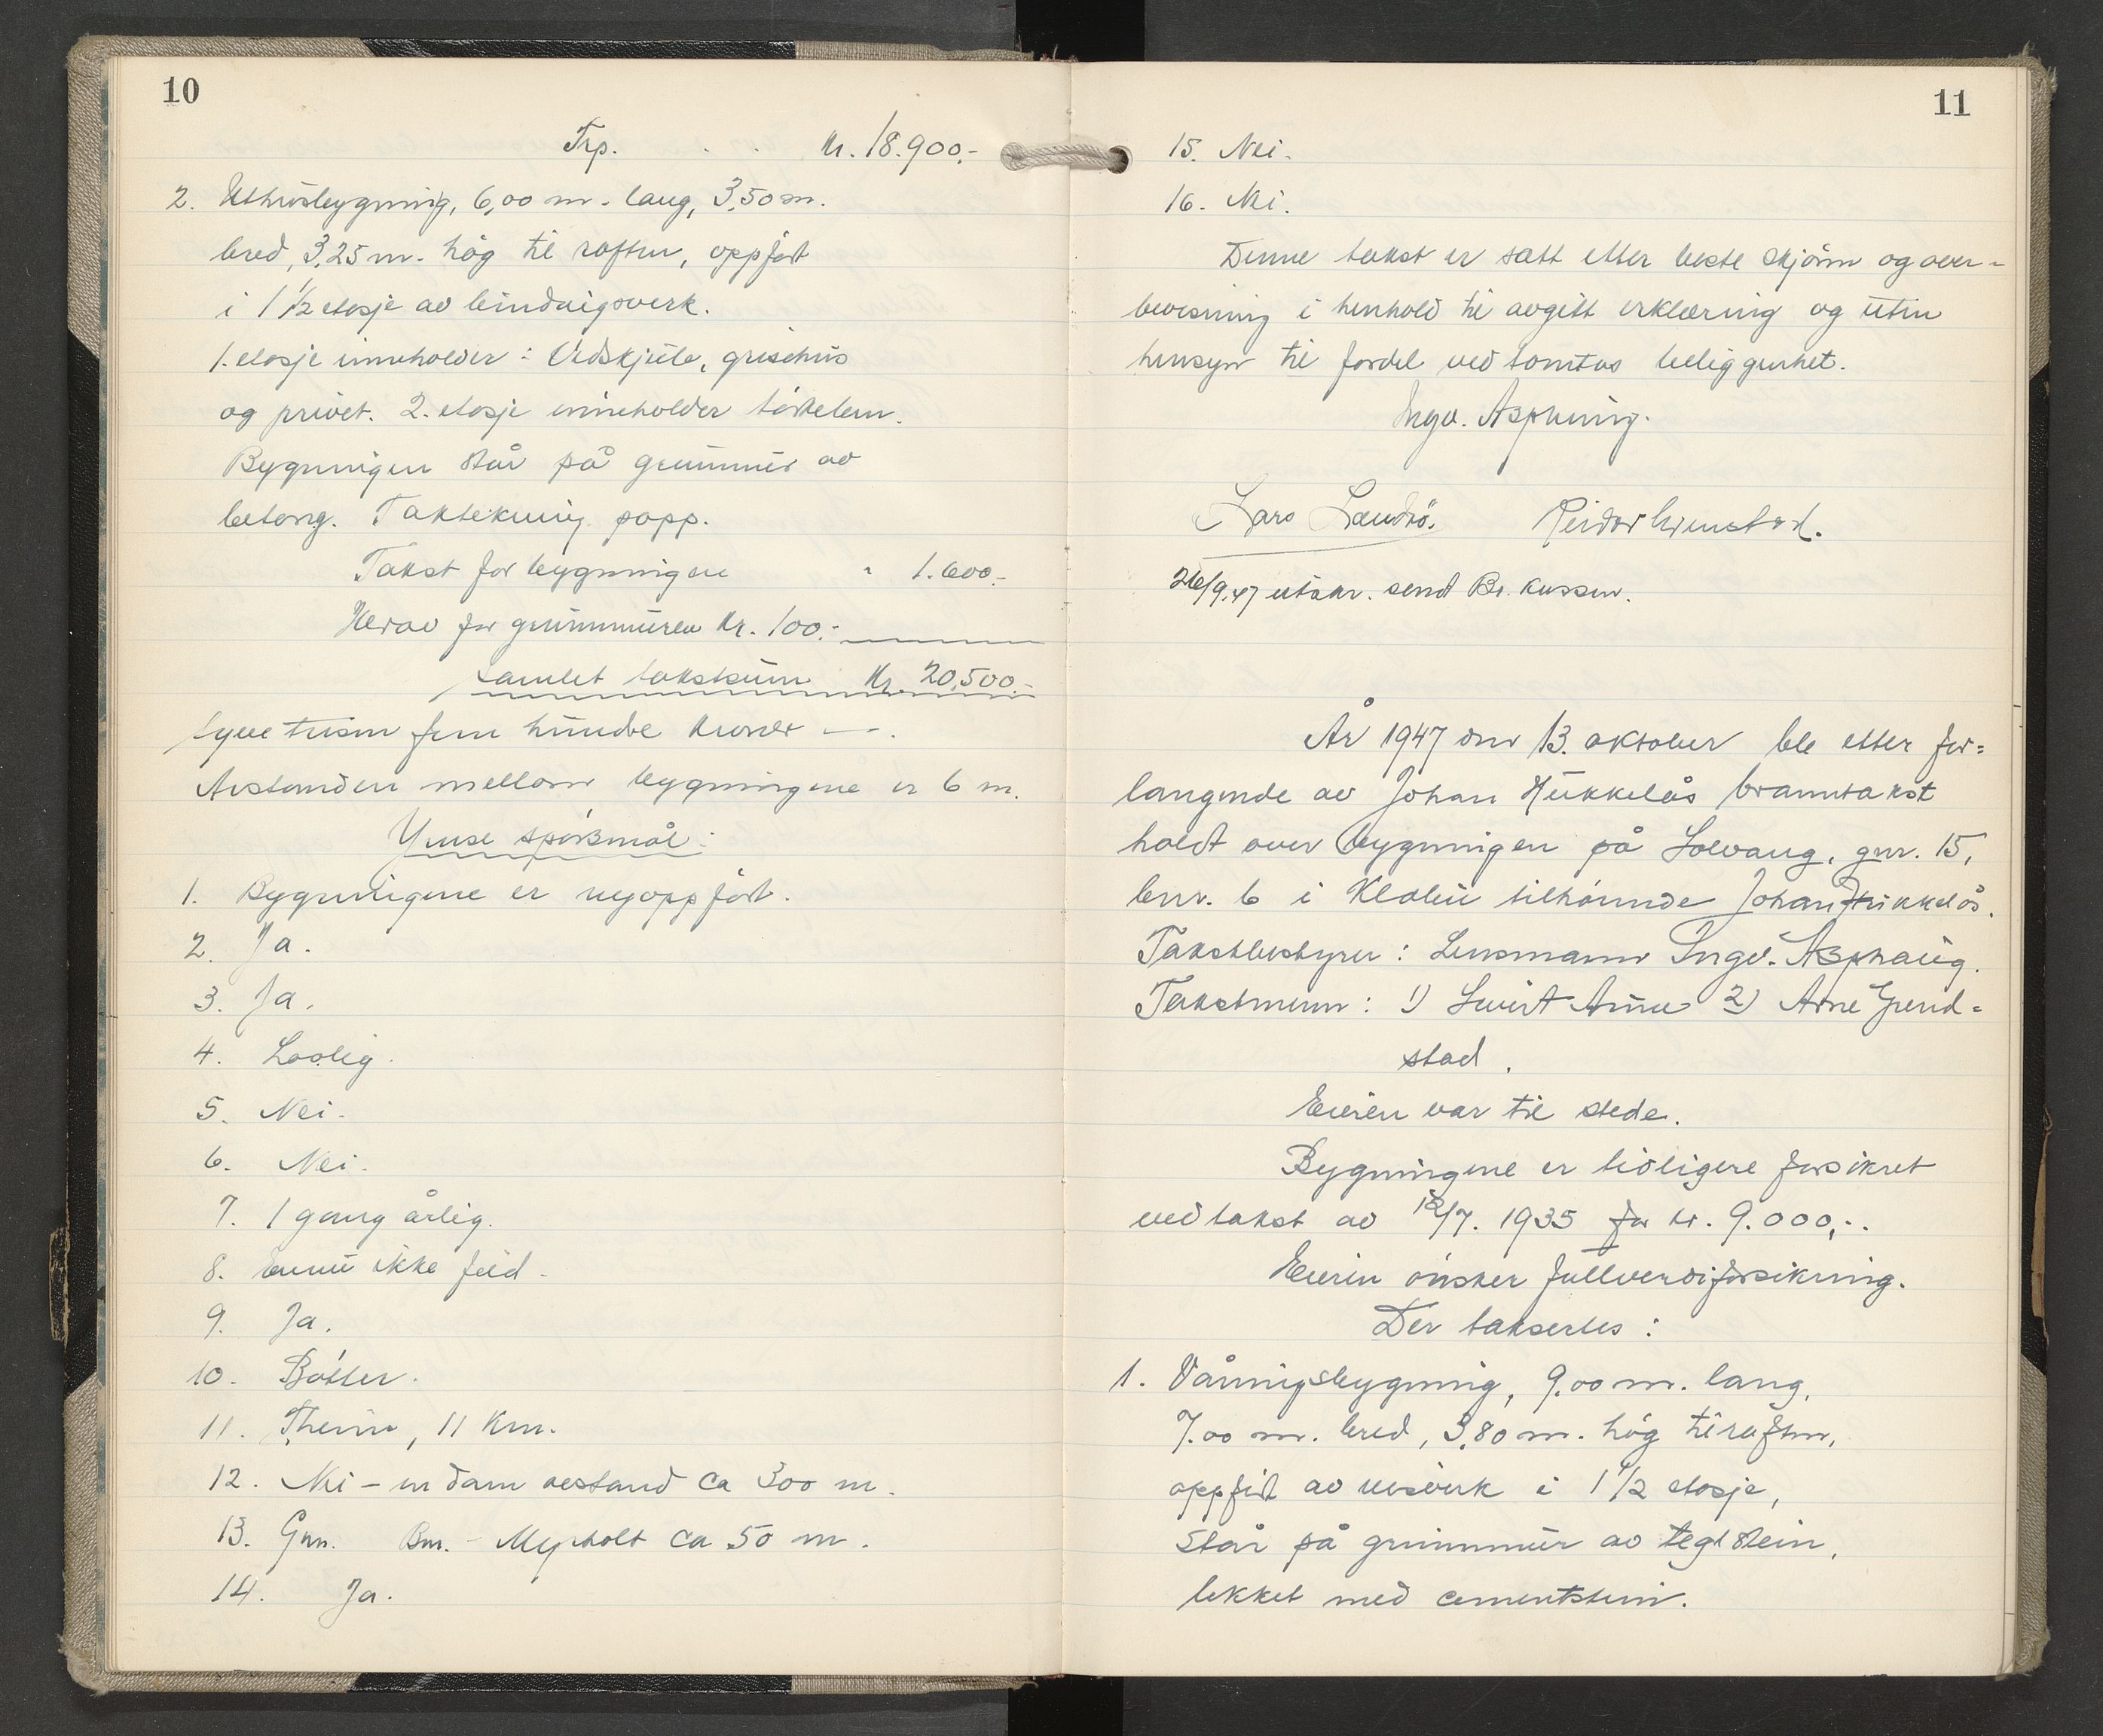 10
Trp. . . Kr. 18.900,-
2. Uthusbygning, 6,00 m. lang, 3,50 m.
bred, 3,25 m. høg til raften, oppført
i 1 1/2 etasje av bindingsverk.
1. etasje inneholder: Vedskjule, grisehus
og privet. 2. etasje inneholder tørkelem.
Bygningen står på grunnmur av
betong. Taktekning papp.
Takst for bygningen " 1.600.-
Herav for grunnmuren Kr. 100.-
Samlet takstsum Kr. 20,500.-
tyve tusen fem hundre kroner —.
Avstanden mellom bygningene er 6 m.
Ymse spørsmål:
1. Bygningene er nyoppført.
2. Ja.
3. Ja.
4. Laslig.
5. Nei.
6. Nei.
7. 1 gang årlig.
8. Ennu ikke feid.
9. Ja.
10. Bøtter.
11. Theim, 11 Km.
12. Nei - en dam avstand ca 300 m.
13. Gnr. Bnr. - Myrholt ca 50 m.
14. Ja.
11
15. Nei.
16. Nei.
Denne takst er satt etter beste skjønn og over-
bevisning i henhold til avgitt erklæring og uten
hensyn til fordel ved tomtas beliggenhet.
Ingv. Asphaug.
Lars Landrö. Reidar Grendstad.
26/9.47 utskr. sendt Br. kassen.
År 1947 den 13. oktober ble etter for=
langende av Johan Hukkelås branntakst
holdt over bygningen på Solvang, gnr. 15,
bnr. 6 i Klæbu tilhørende Johan Hukkelås.
Takstbestyrer: Lensmann Ingv. Asphaug.
Takstmenn: 1) Sivert Aune 2) Arne Grend=
stad.
Eieren var til stede.
Bygningene er tidligere forsikret
ved takst av 12/7. 1935 for kr. 9.000,-.
Eieren ønsker fullverdiforsikring.
Der takseres:
1. Våningsbygning, 9,00 m. lang,
7.00 m. bred, 3,80 m. høg til raften,
oppført av reisverk i 1 1/2 etasje,
står på grunnmur av teglstein,
tekket med cementstein.